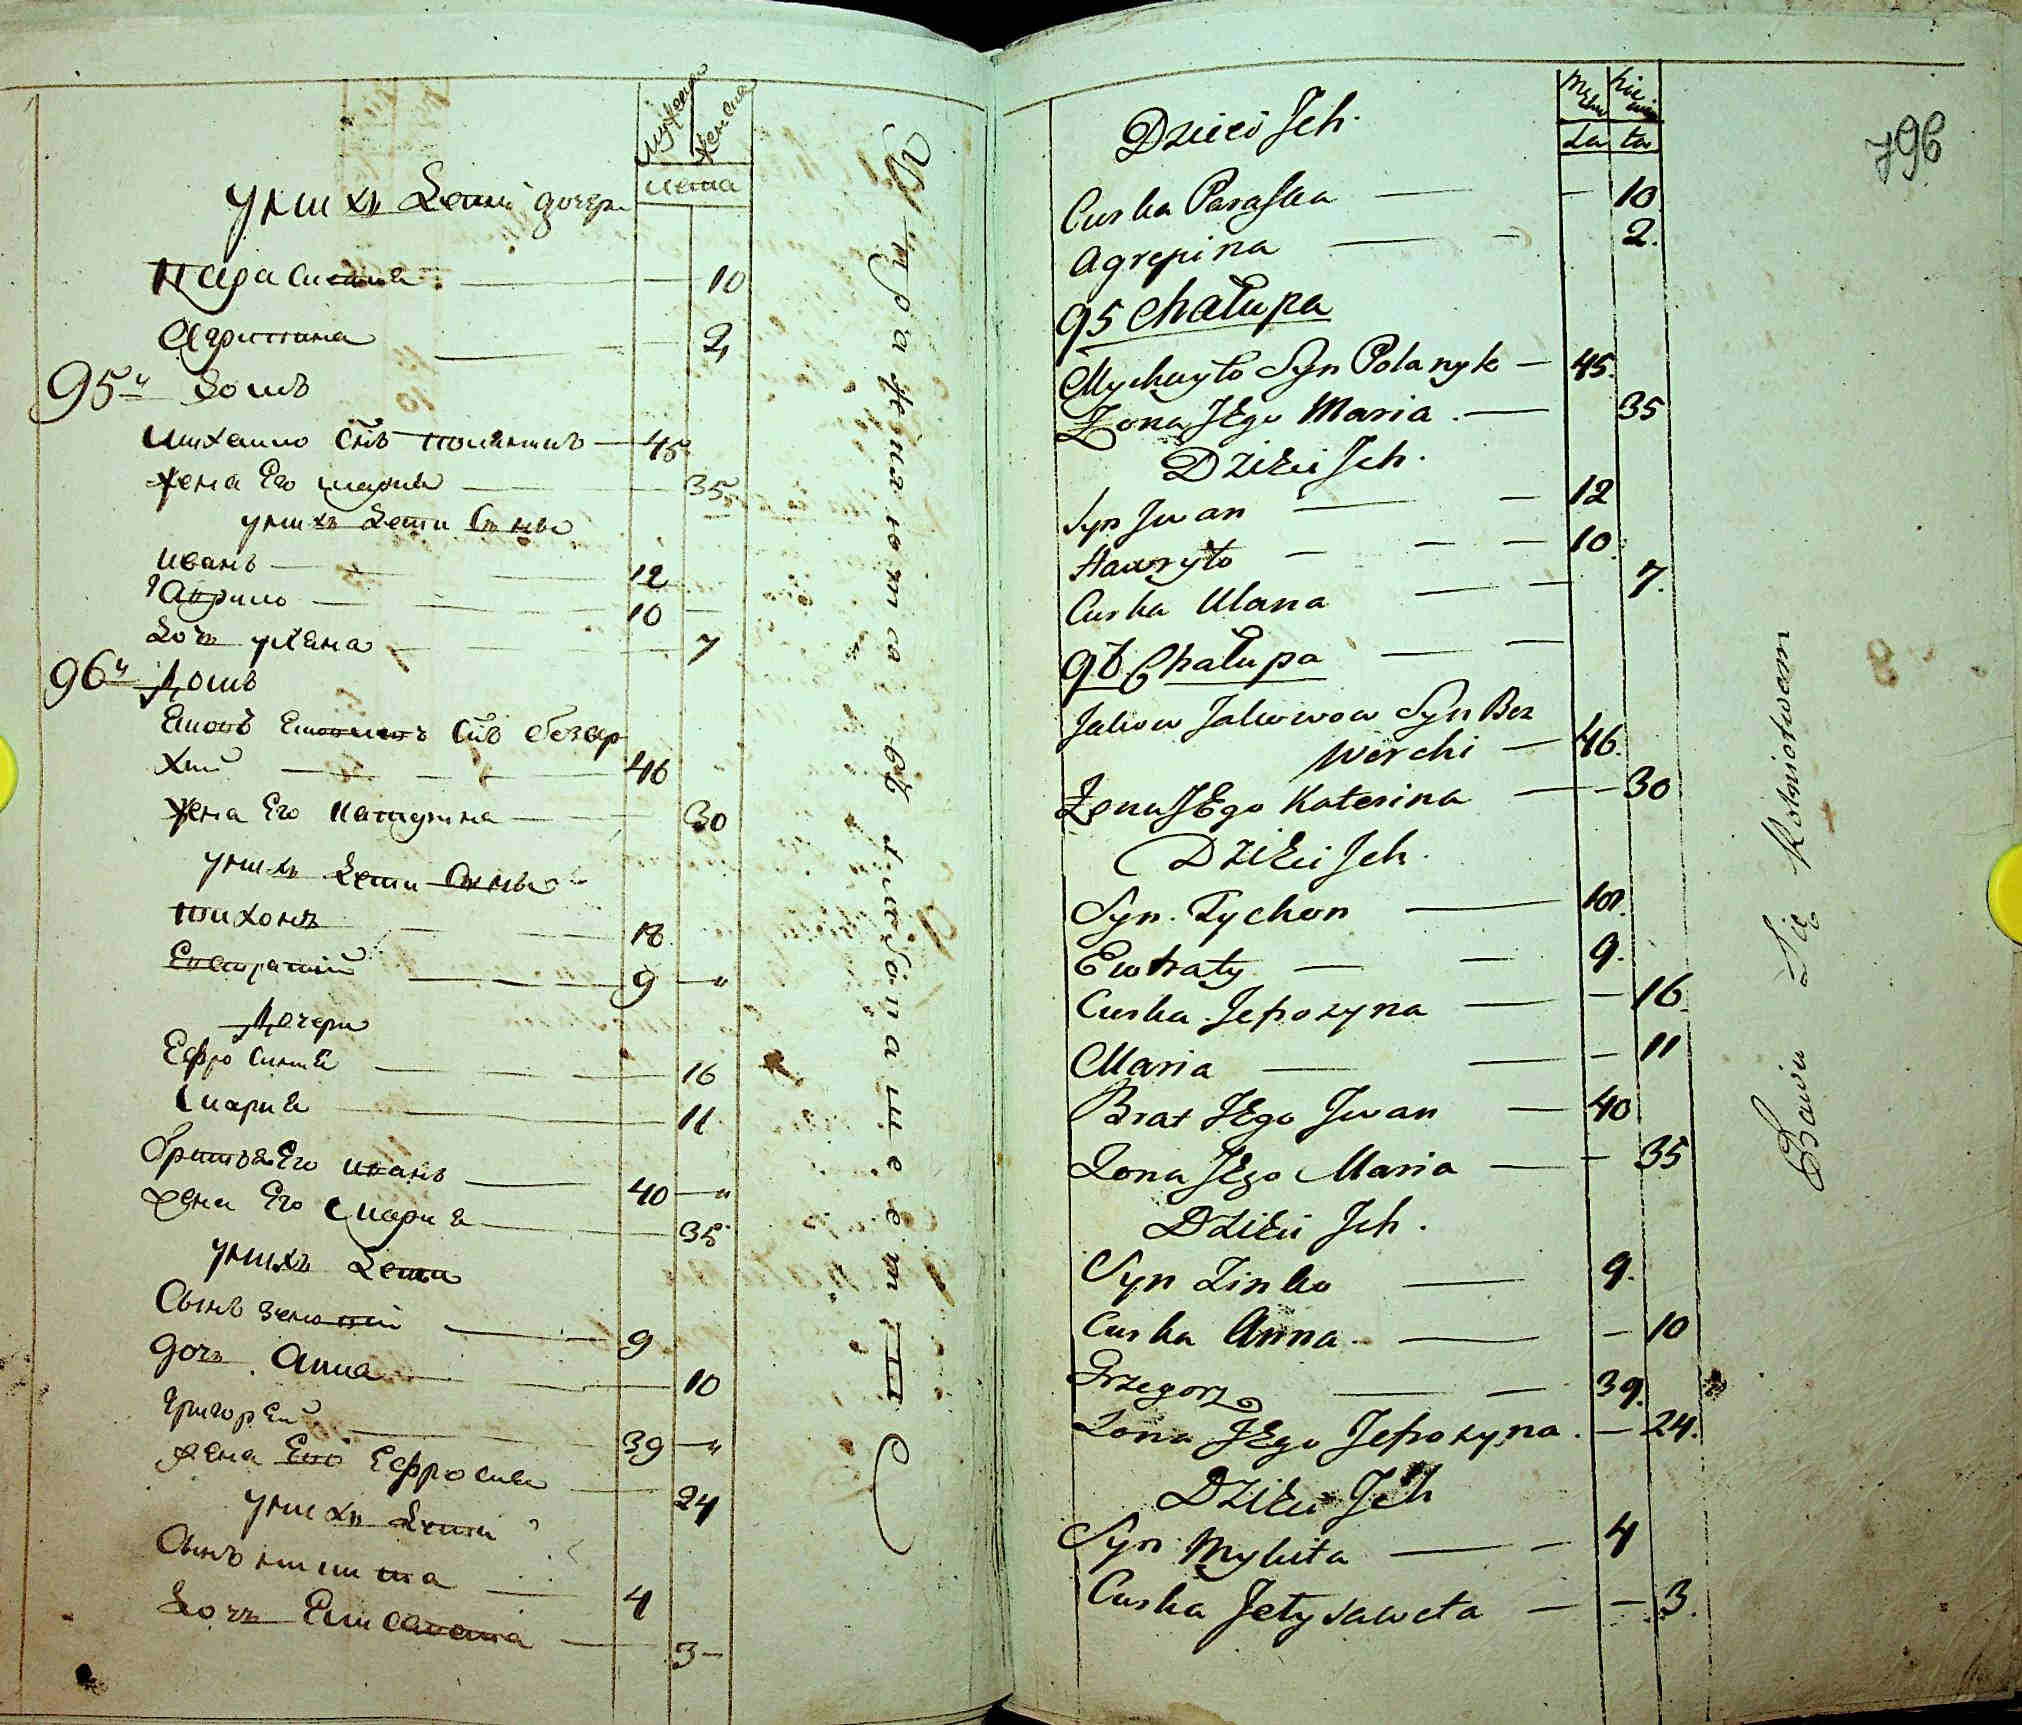 мужеска
женска
лета
у них дети дочери
Параскевия — 10
Агрипина — 2
95й домъ
Михайло Снъ Полянинъ — 45
жена Его Мария — 35
у них дети Сыны
Иванъ — 12
Гаврило — 10
дочь уляна — 7
96й домъ
Снъ безвер
хий — 46
жена Его Катерина — 30
у них дети Сыны
Тихонъ — 18
Евстратий — 9 —
дочери
Ефросиния — 16
Мария — 11
братъ Его иванъ — 40 —
жена Его Мария — 35
у них дети
Сынъ Зеновий — 9
дочь Анна — 10
Григорей — 39 —
жена Его Ефросиния — 24
у них дети
Сынъ никита — 4
дочь Елисавета — 3 —
упражняются въ хлебопашестве
Dzieci Jch.
La ta
Curka Paraska — — 10
Agrepina — — 2.
95 Chałupa
Mychayło Syn Polanyk — 45.
Żona JEgo Maria. — 35
Dzieci Jch.
Syn Jwan — — 12
Hawryło — — — 10.
Curka Ulana — — 7.
96 Chałupa — —
Jakow Jakowow Syn Bez
werchi — 46.
Żona JEgo Katerina — — 30
Dzieci Jch.
Syn. Tychon — 18.
Ewtraty — — 9.
Curka Jefrozyna — — 16
Maria — — — 11
Brat JEgo Jwan — 40
Żona JEgo Maria — — 35
Dzieci Jch.
Syn Zinko — 9.
Curka Anna. — — 10
Grzegorz — — 39.
Żona JEgo Jefrozyna. — 24.
Dzieci Jch
Syn Mykita — — 4
Curka Jełysaweta — — 3.
796
Bawią Się Rolnictwem